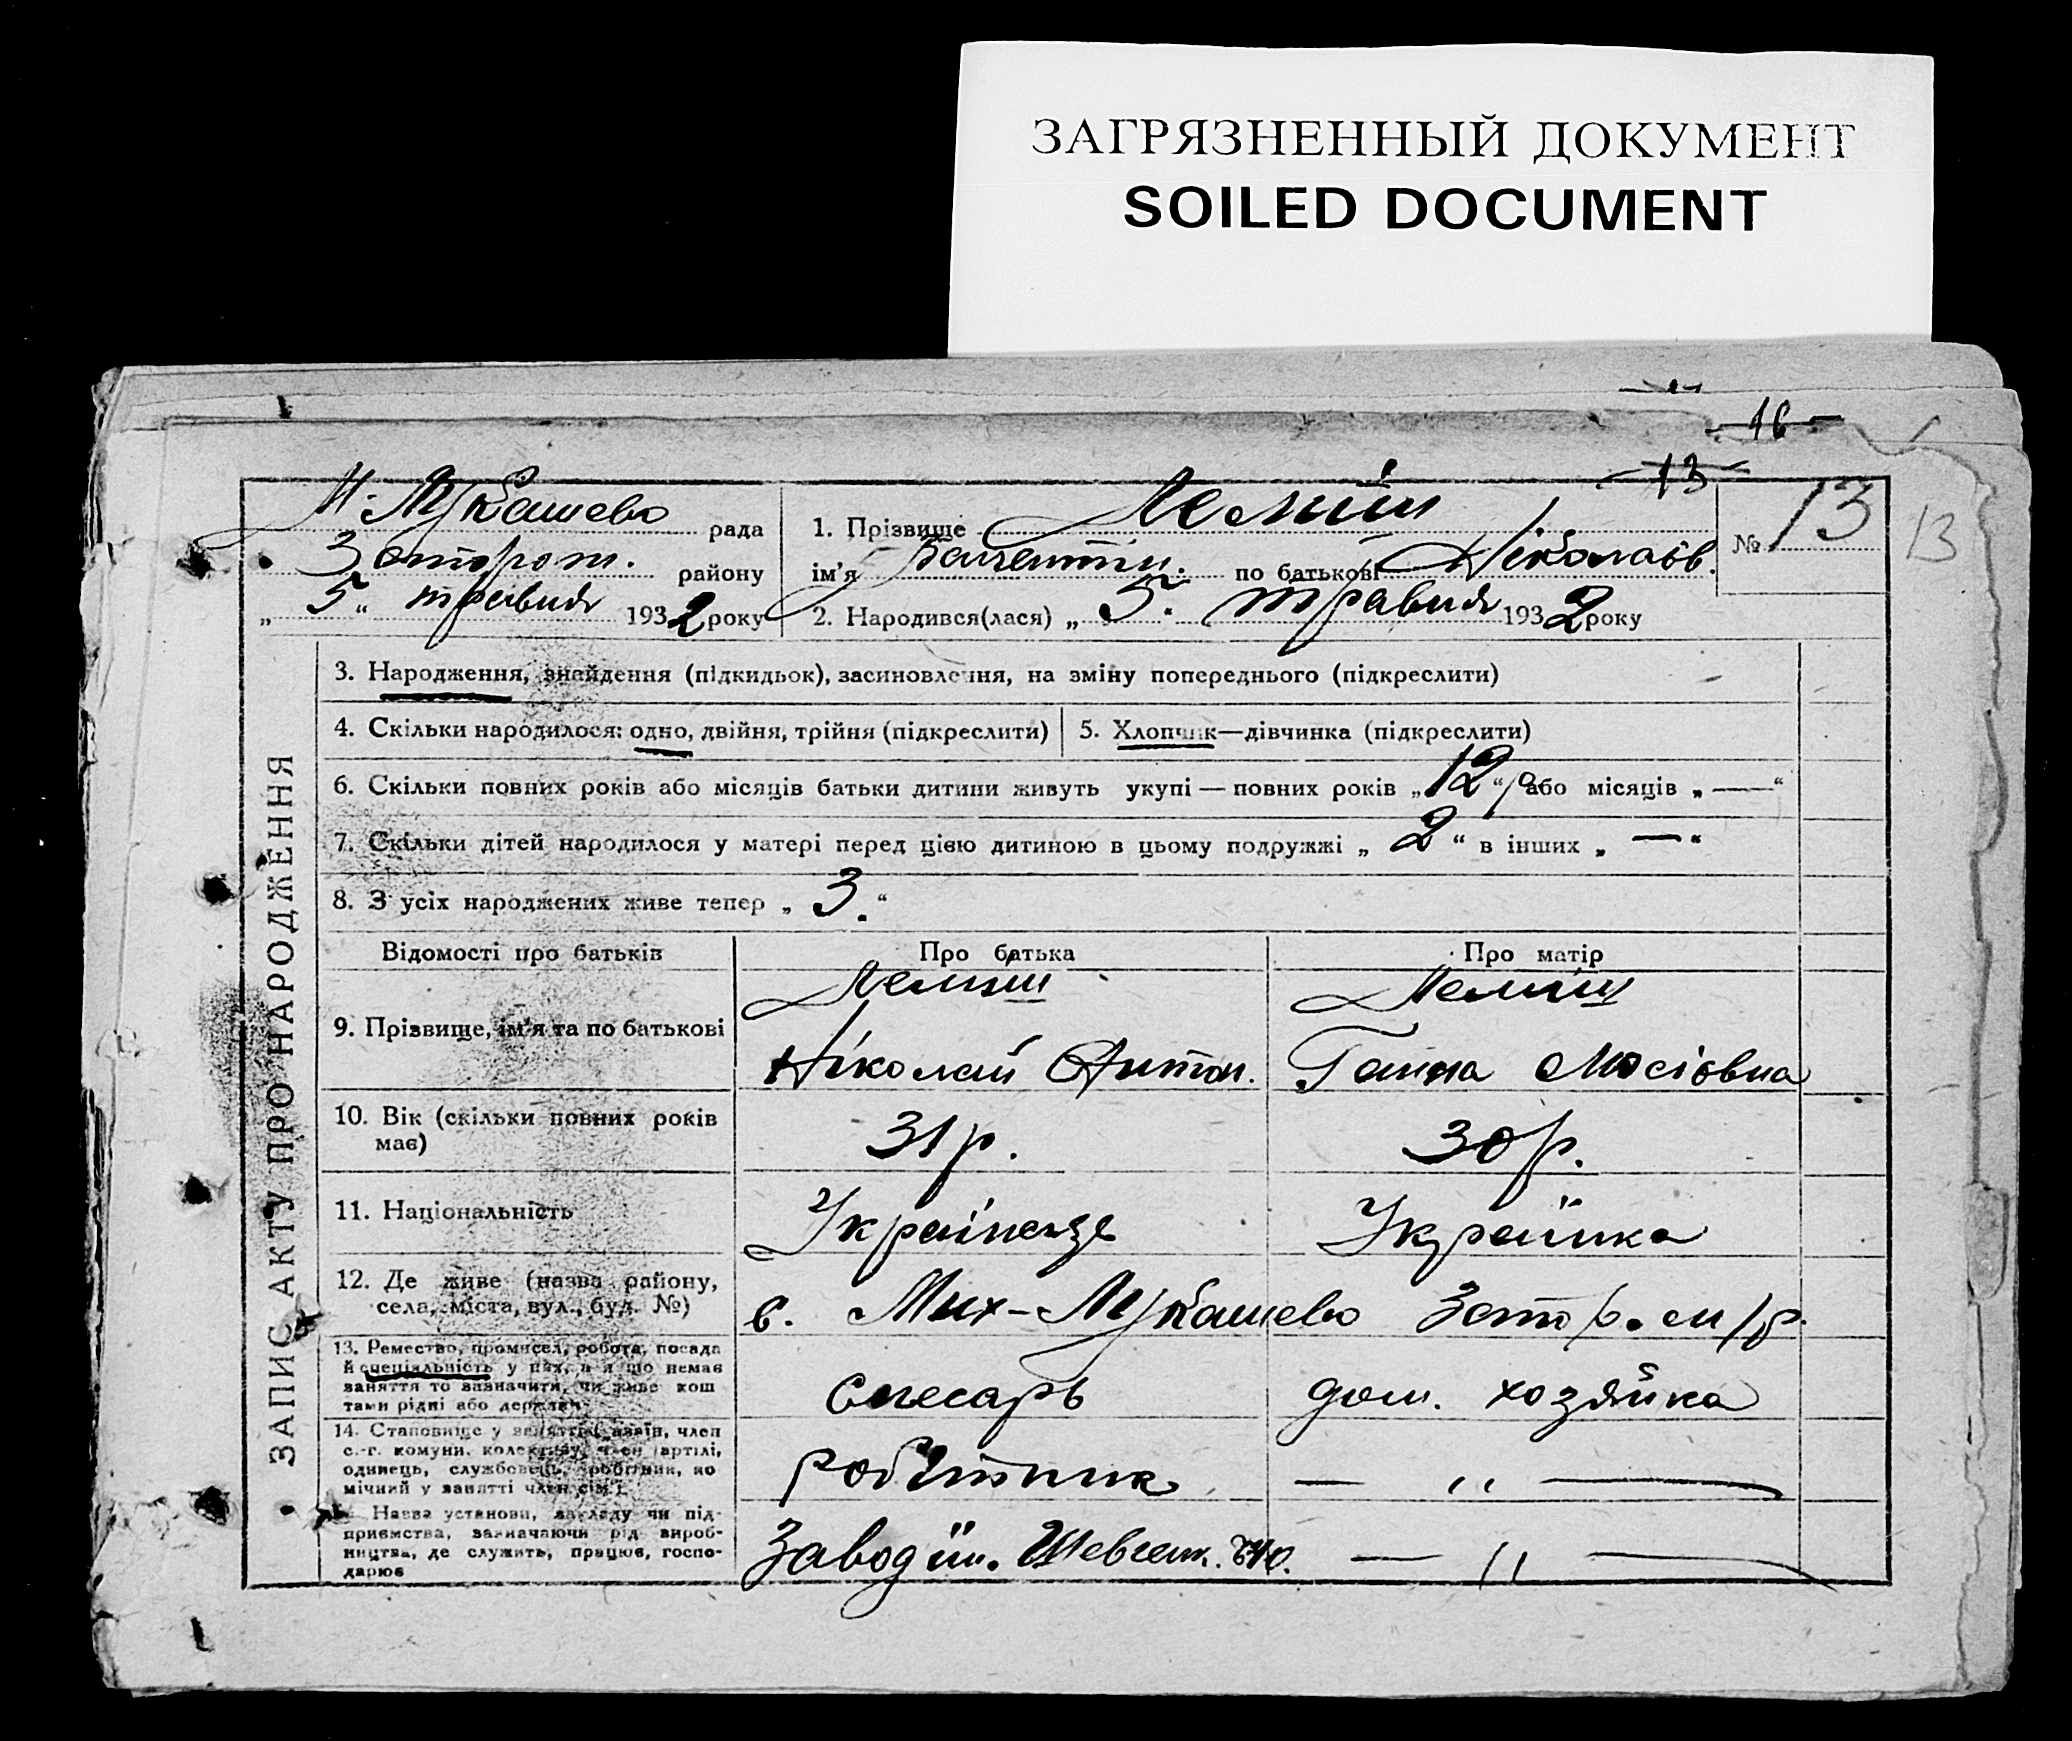 ЗАГРЯЗНЕННЫЙ ДОКУМЕНТ
SOILED DOCUMENT
16
13
М. Лукашево рада
1. Прізвище Леміш
№ 13
13
району
ім'я Валентин. по батькові Ніколаєв.
„ 5 “ травня 1932 року
2. Народився(лася) „ 5. травня 1932 року
ЗАПИС АКТУ ПРО НАРОДЖЕННЯ
3. Народження, знайдення (підкидьок), засиновлення, на зміну попереднього (підкреслити)
4. Скільки народилося: одно, двійня, трійня (підкреслити)
5. Хлопчик—дівчинка (підкреслити)
6. Скільки повних років або місяців батьки дитини живуть укупі — повних років „ 12 “ р. або місяців „ — “
7. Скільки дітей народилося у матері перед цією дитиною в цьому подружжі „ 2 “ в інших „ — “
8. З усіх народжених живе тепер „ 3. “
Відомості про батьків
Про батька
Про матір
9. Прізвище, ім'я та по батькові
Леміш
Ніколай Антон.
Леміш
Ганна Мосіовна
10. Вік (скільки повних років
має)
31 р.
30 р.
11. Національність
Українець
Українка
12. Де живе (назва району,
села, міста, вул., буд. №)
с. Мих-Лукашево
13. Ремество, промисел, робота, посада
й спеціальність у них, а якщо немає
заняття то зазначити, чи живе кош
тами рідні або держави
слесарь
дом. хозяйка
14. Становище у занятті (хазяїн, член
с.-г. комуни, колективу, член артілі,
одинець, службовець, робітник, по
мічний у занятті член сім.)
робітник
— „ —
Назва установи, закладу чи під-
приємства, зазначаючи рід вироб-
ництва, де служить, працює, госпо-
дарює
Завод ім. Шевченк.
— „ —